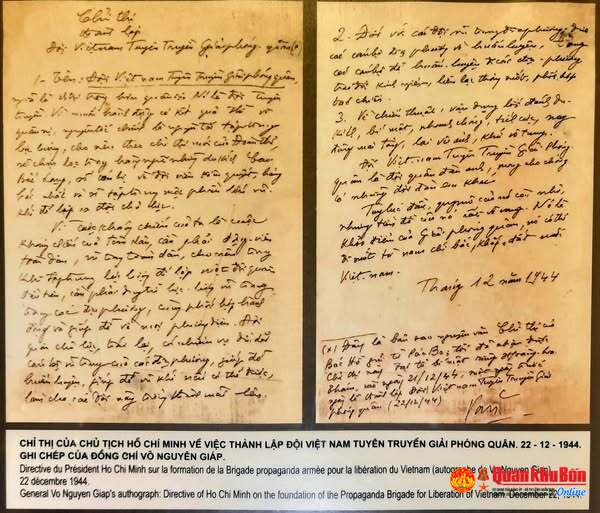 Chỉ thị
thành lập
Đội Việtnam Tuyên Truyền Giải phóng quân (*)
1. Tên: Đội Việt nam Tuyên Truyền Giải phóng quân,
nghĩa là chính trị trọng hơn quân sự. Nó là đội tuyên
truyền. Vì muốn hành động có kết quả thì về
quân sự, nguyên tắc chính là nguyên tắc tập trung
lực lượng, cho nên theo chỉ thị mới của Đoàn thể
sẽ chọn lọc trong hàng ngũ những du kích Cao
Bắc Lạng, số cán bộ và đội viên kiên quyết, hăng
hái nhất và sẽ tập trung một phần lớn vũ
khí để lập ra đội chủ lực.
Vì cuộc kháng chiến của ta là cuộc
kháng chiến của toàn dân, cần phải động viên
toàn dân, vũ trang toàn dân, cho nên trong
khi tập trung lực lượng để lập một đội quân
đầu tiên, cần phải duy trì lực lượng vũ trang
trong các địa phương, cùng phối hợp hành
động và giúp đỡ về mọi phương diện. Đội
quân chủ lực trái lại, có nhiệm vụ dìu dắt
cán bộ vũ trang của các địa phương, giúp đỡ
huấn luyện, giúp đỡ vũ khí nếu có thể được,
làm cho các đội này trưởng thành mãi lên.
2. Đối với các đội vũ trang địa phương, đưa
các cán bộ địa phương về huấn luyện, tung
các cán bộ đã huấn luyện đi các địa phương
trao đổi kinh nghiệm, liên lạc thông suốt, phối hợp
tác chiến.
3. Về chiến thuật, vận dụng lối đánh du
kích, bí mật, nhanh chóng, tích cực, nay
đông mai tây, lai vô ảnh, khứ vô tung.
Đội Việt nam Tuyên Truyền Giải Phóng
quân là đội quân đàn anh, mong cho chóng
có những đội đàn em khác.
Tuy lúc đầu, quy mô của nó còn nhỏ,
nhưng tiền đồ của nó rất vẻ vang. Nó là
khởi điểm của Giải phóng quân, nó có thể
đi suốt từ nam chí bắc, khắp đất nước
Việt-nam.
Tháng 12 năm 1944
(*) Đây là bản sao nguyên văn Chỉ thị của
Bác Hồ gửi từ Pác Bó, tôi đã nhận được
ngày 21/12/44, một ngày trước
ngày lễ thành lập Đội Việt nam Tuyên Truyền Giải
phóng quân (22/12/44)
Văn
CHỈ THỊ CỦA CHỦ TỊCH HỒ CHÍ MINH VỀ VIỆC THÀNH LẬP ĐỘI VIỆT NAM TUYÊN TRUYỀN GIẢI PHÓNG QUÂN. 22 - 12 - 1944.
GHI CHÉP CỦA ĐỒNG CHÍ VÕ NGUYÊN GIÁP.
Directive du Président Ho Chi Minh sur la formation de la Brigade propaganda armée pour la libération du Vietnam (autographe de Vo Nguyen Giap)
22 décembre 1944.
General Vo Nguyen Giap's authograph: Directive of Ho Chi Minh on the foundation of the Propaganda Brigade for Liberation of Vietnam. December 22, 1944.
QuanKhuBốn
Online